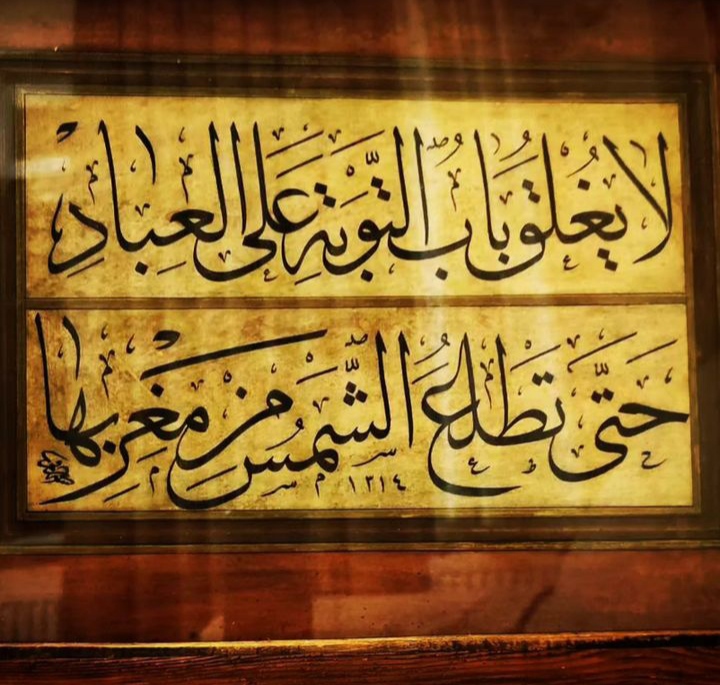 لَا يُغْلَقُ بَابُ التَّوْبَةِ عَلَى الْعِبَادِ
حَتَّى تَطْلُعَ الشَّمْسُ مِنْ مَغْرِبِهَا
١٣١٤